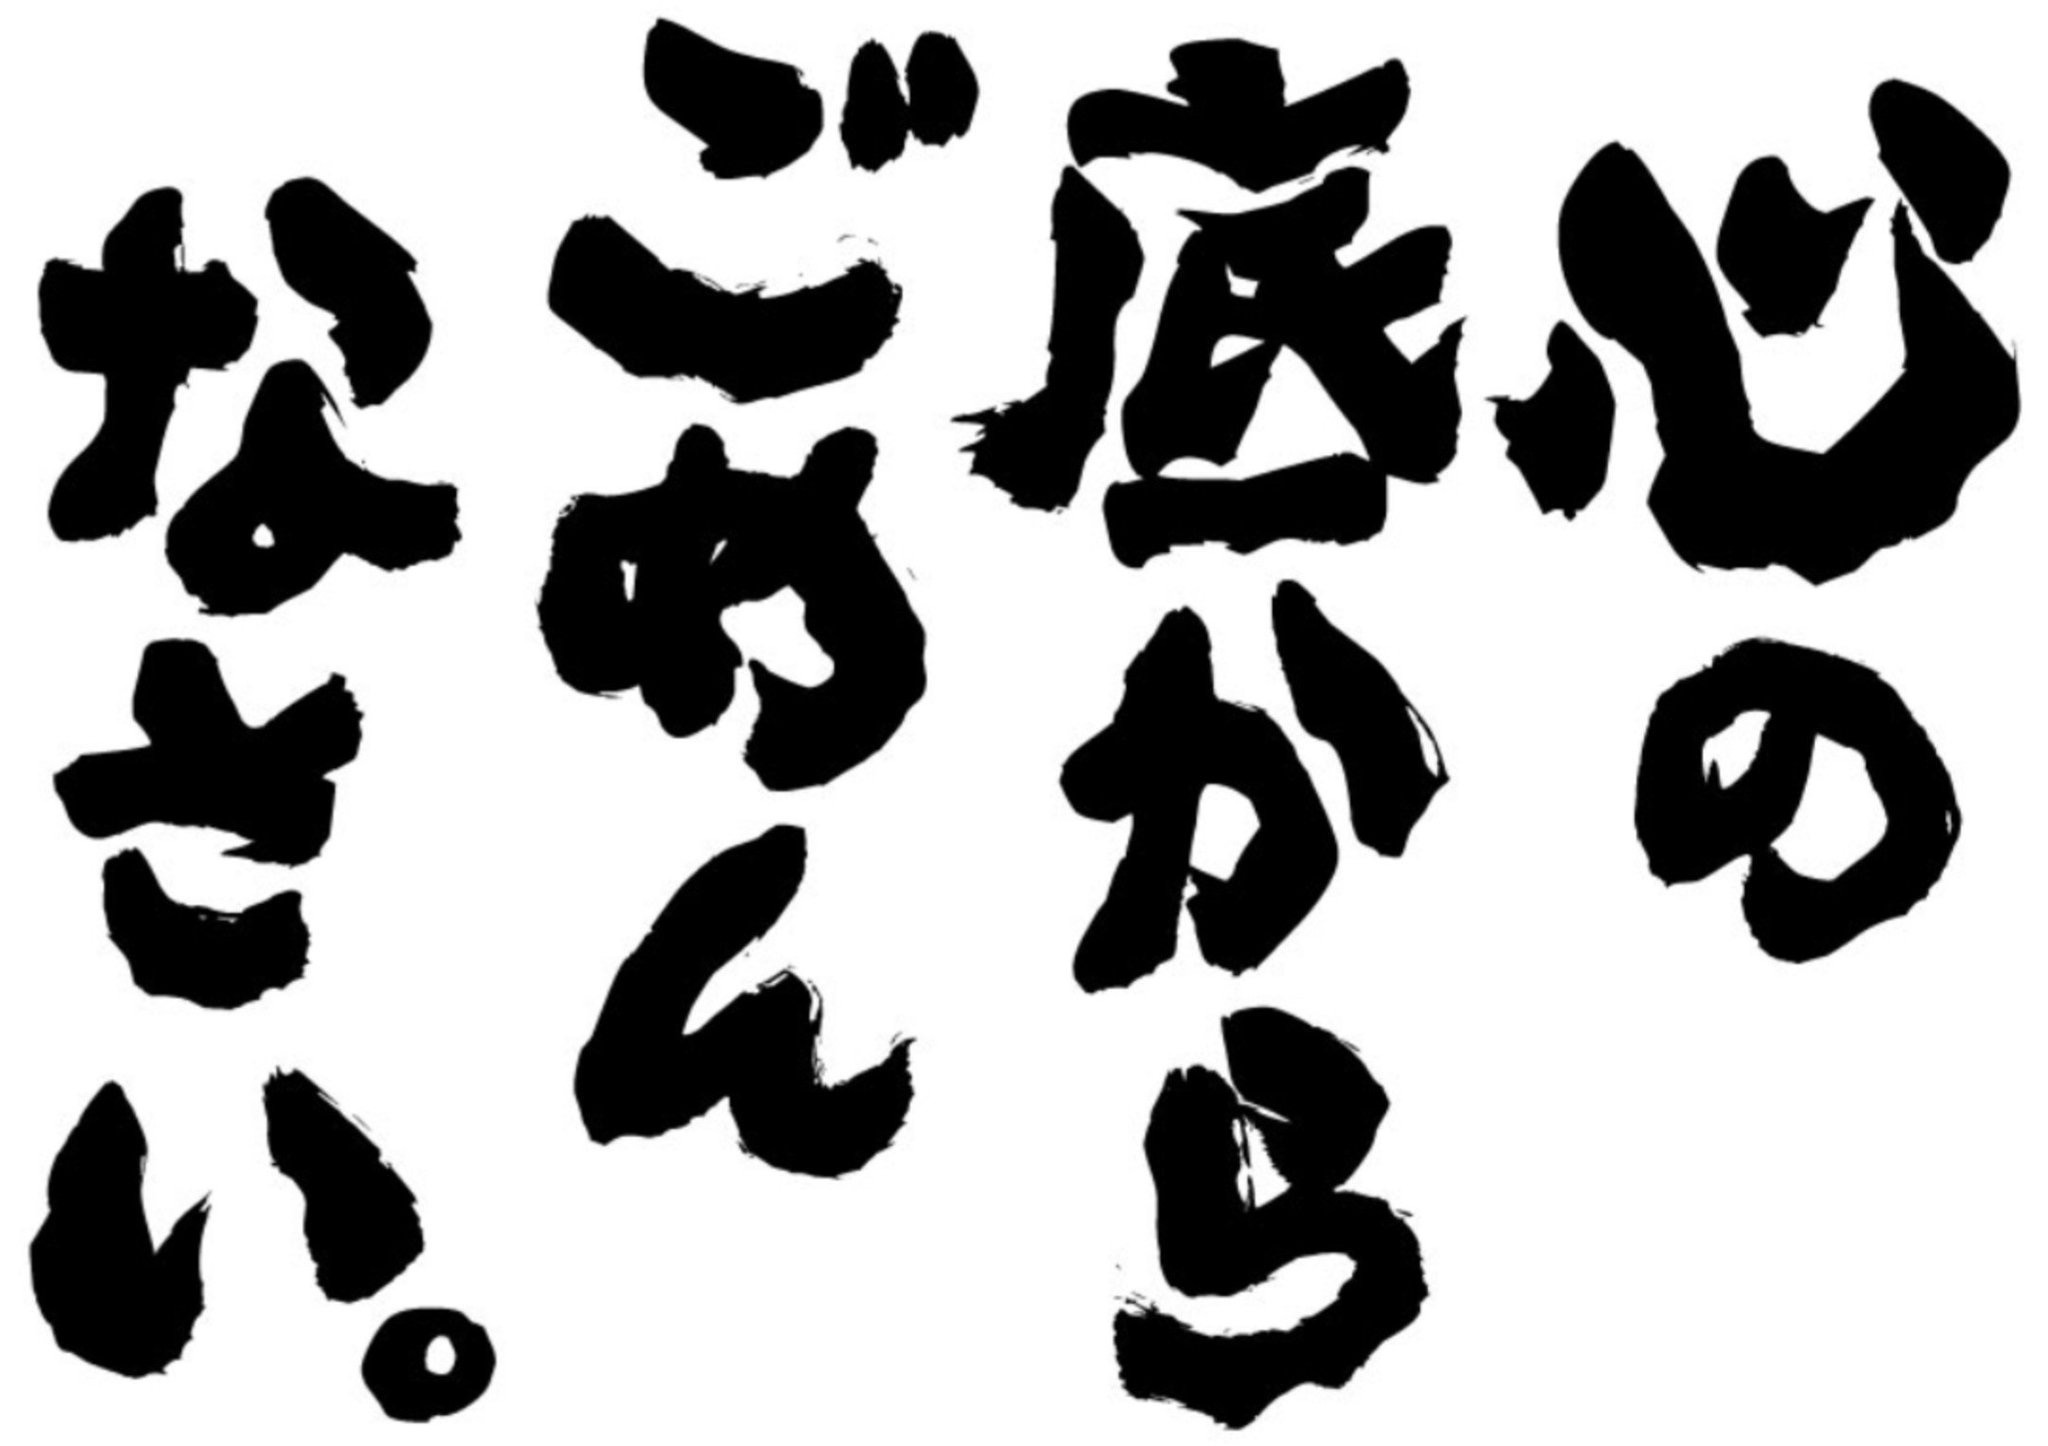 心の
底から
ごめん
なさい。